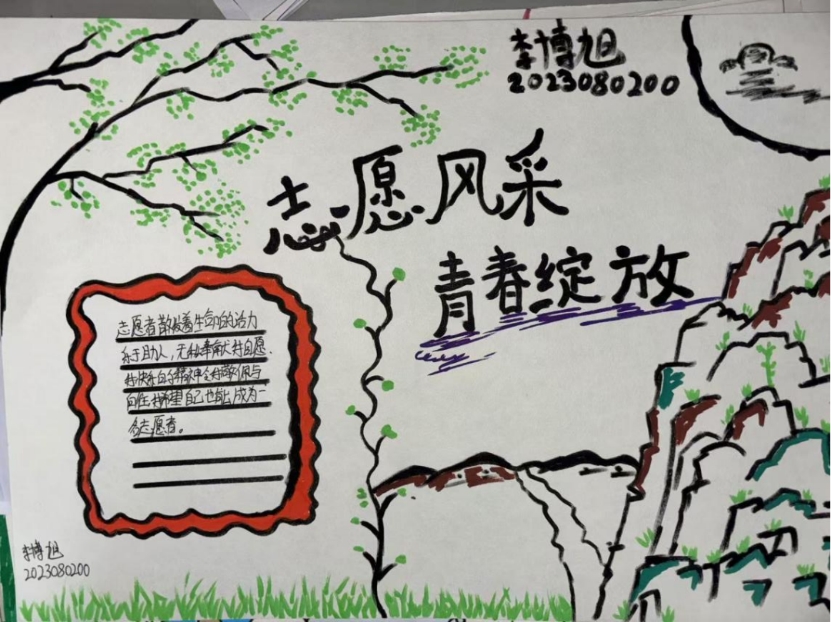 李博旭
2023080200
志愿风采
青春绽放
志愿者散发着生命的活力
乐于助人，无私奉献大持自愿.
持快乐的精神令我敬佩与
向往我希望自己也能成为一
名志愿者。
李博旭
2023080200